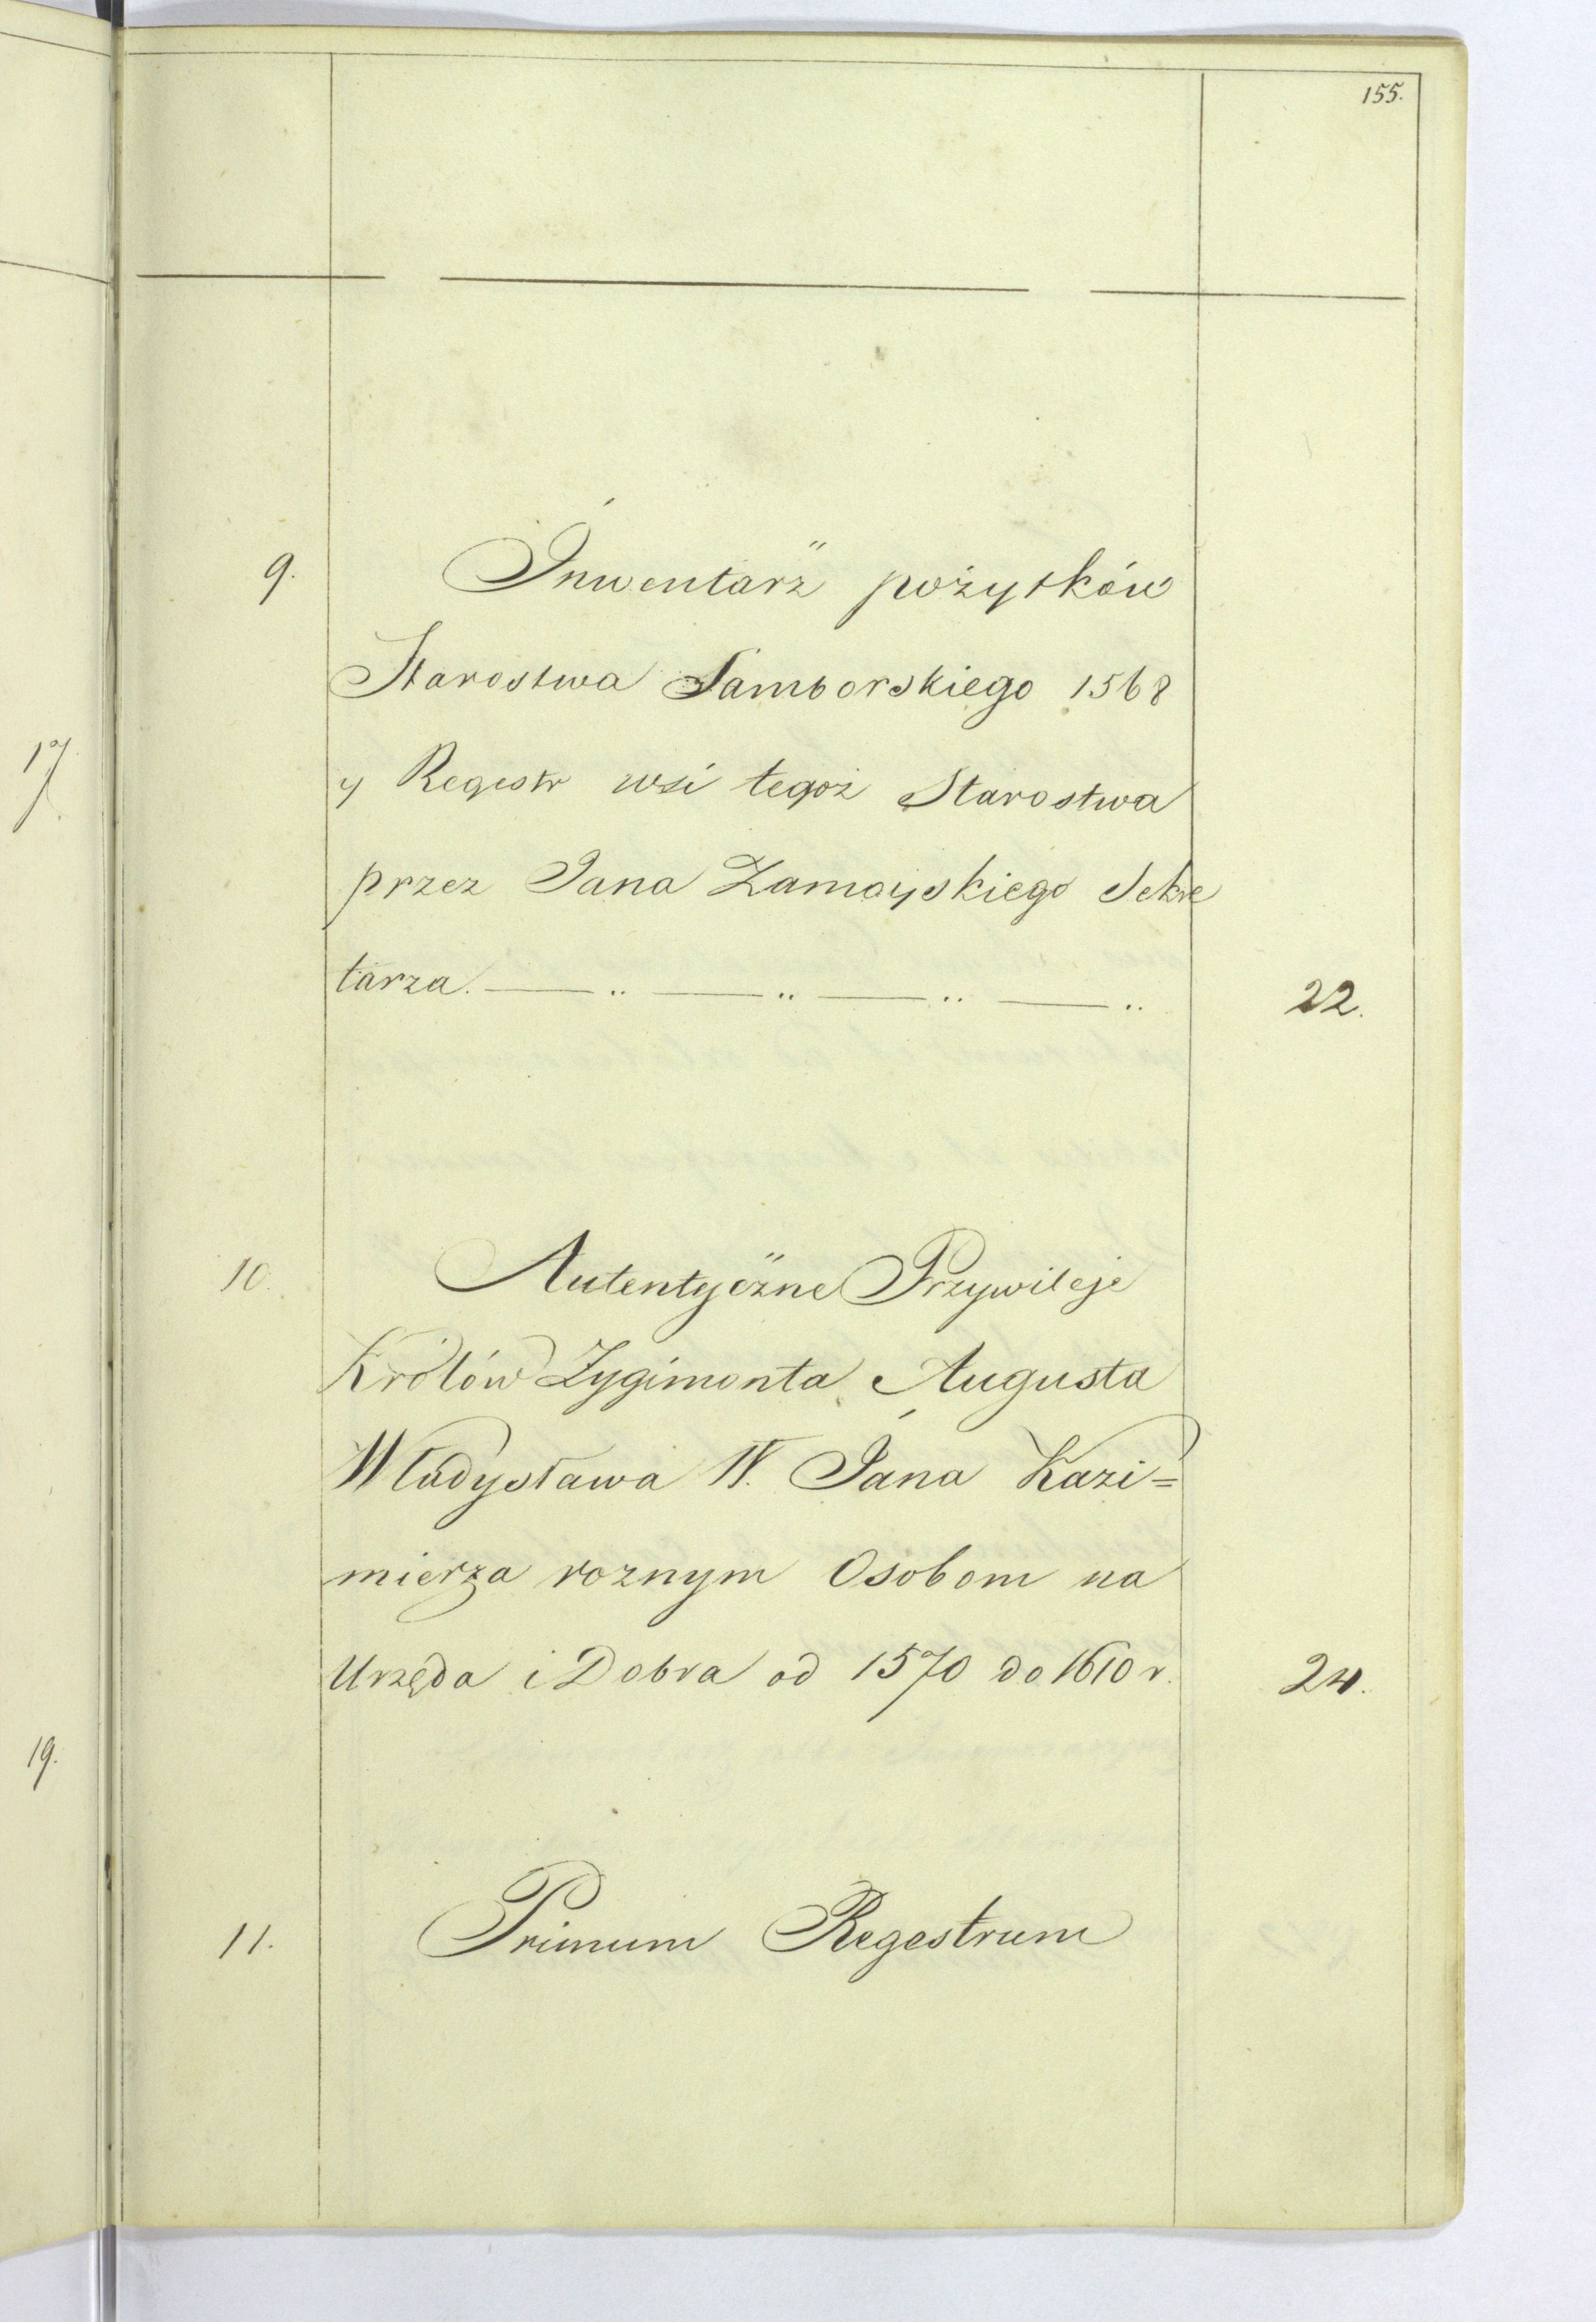 155.
9. Inwentarz pożytków
Starostwa Samborskiego 1568
y Regestr wsi tegoż Starostwa
przez Jana Zamoyskiego Sekre
tarza. — „ — „ — „ — „ 22.
17.
10. Autentyczne Przywileje
Królów Zygimonta Augusta
Władysława IV. Jana Kazi=
mierza roznym Osobom na
Urzęda i Dobra od 1570 do 1610 r. 24.
19.
11. Primum Regestrum